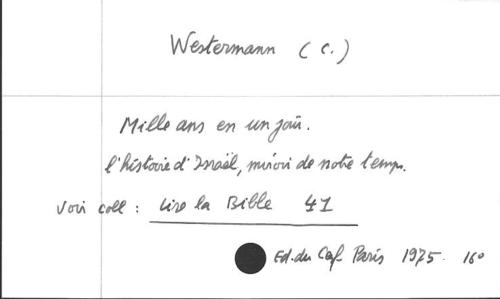 Westermann (C.)
Mille ans en un jour.
l'histoire d'Israël, miroir de notre temps.
Voir coll : Lire la Bible 41
Ed. du Cerf Paris 1975. 16°